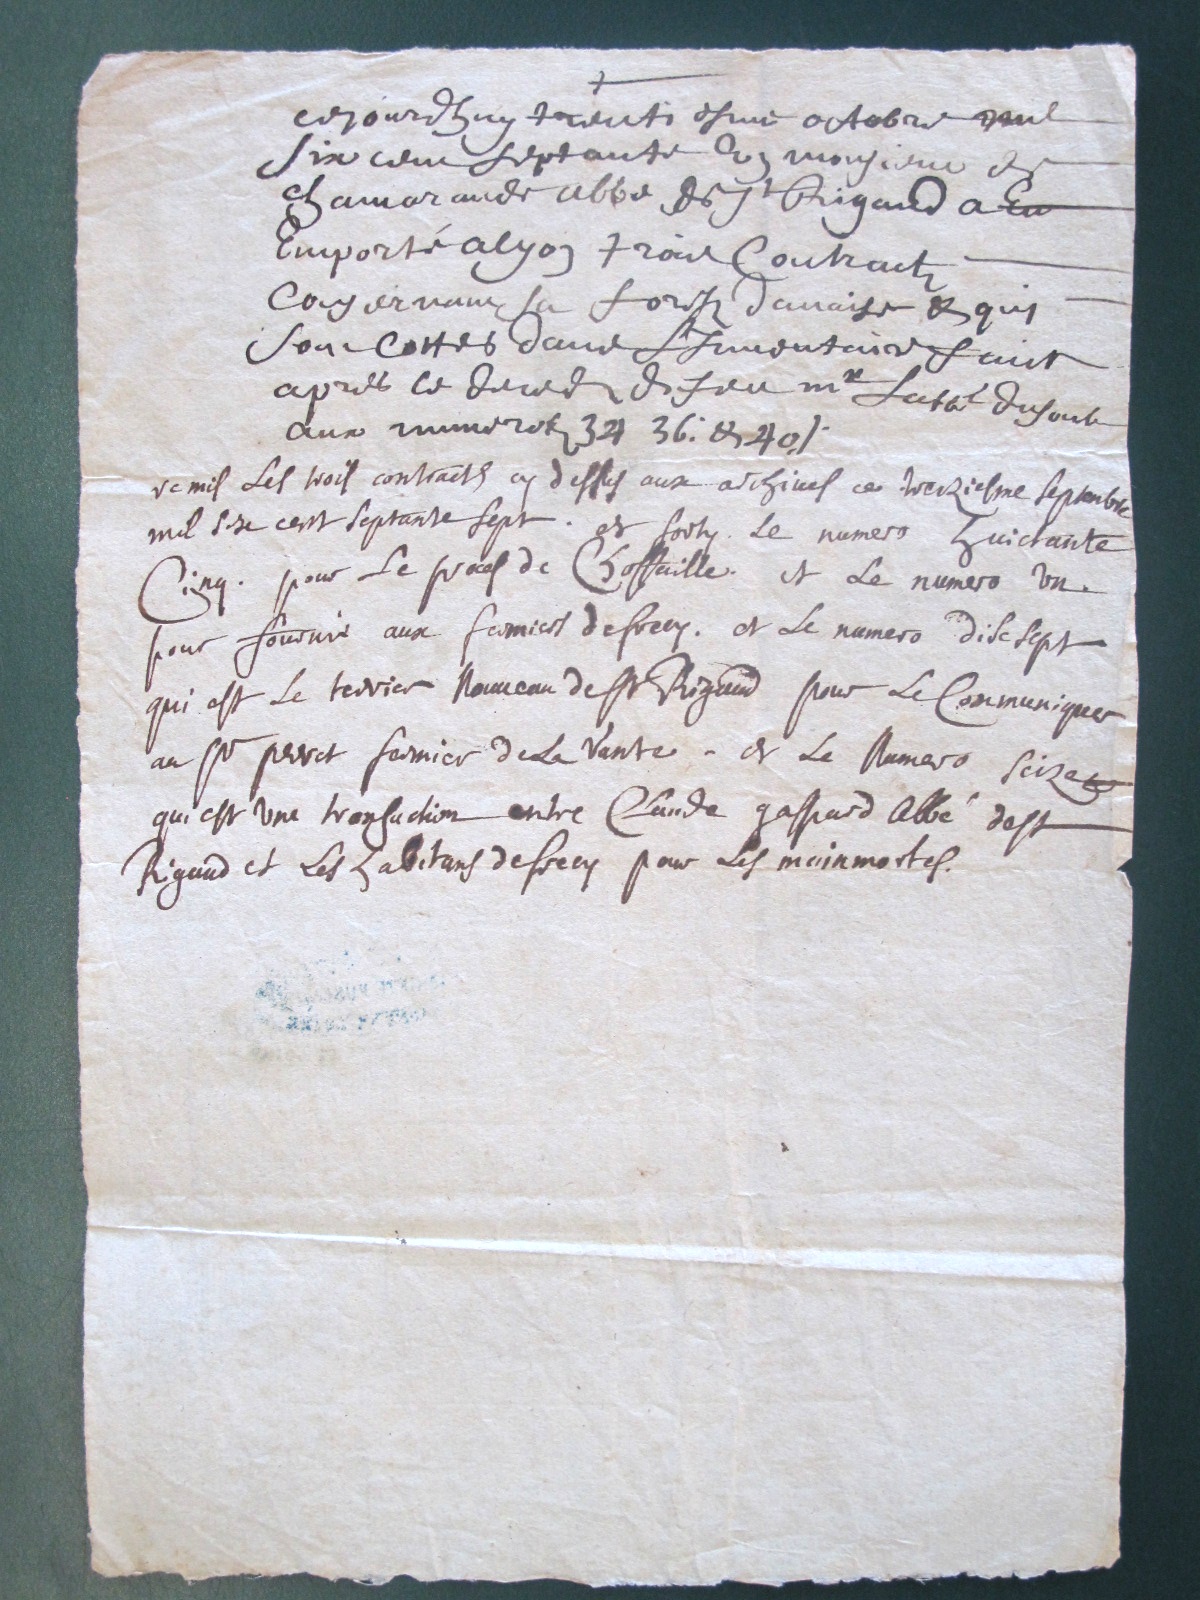 cejourdhuy trenti esme octobre mil
six cens septante un monsieur de
chamarande abbé de St Rigaud a
Emporté a lyon trois Contractz
Consernant sa forest davaise & qui
sont Cottes dans L'Inventaire faict
apres le decedz de feu mre
aux numerotz 34 36. & 40/.
remis Les trois contracts cy dessus aux archives ce treziesme septembre
mil size cent septante sept. et sorty. Le numero huictante
Cinq. pour Le proces de Choffaille. et Le numero Un.
pour fournir aux fermiers defrecy. et Le numero disesept
qui est Le terrier Nouveau de St Rigaud pour Le Communiquer
au Sr perret fermier de La Vante. et Le Numero seize
qui est Une transaction entre Claude gaspard Abbé de St
Rigaud et Les habitans defrecy pour Les mainmortes.